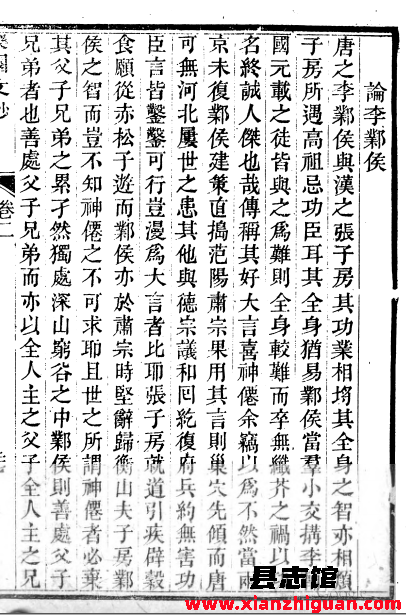 論李鄴侯
唐之李鄴侯與漢之張子房其功業相埒其全身之智亦相類
子房所遇高祖忌功臣耳其全身猶易鄴侯當羣小交搆李輔
國元載之徒皆與之爲難則全身較難而卒無纖芥之禍以功
名終誠人傑也哉傳稱其好大言喜神僊余竊以爲不然當兩
京未復鄴侯建策直搗范陽肅宗果用其言則巢穴先傾而唐
可無河北屢世之患其他與德宗議和回紇復府兵約無害功
臣言皆鑿鑿可行豈漫爲大言者比耶張子房就道引疾辟穀
食願從赤松子遊而鄴侯亦於肅宗時堅辭歸衡山夫子房鄴
侯之智而豈不知神僊之不可求耶且世之所謂神僊者必棄
其父子兄弟之累孑然獨處深山窮谷之中鄴侯則善處父子
兄弟者也善處父子兄弟而亦以全人主之父子全人主之兄
文鈔
卷二
县志馆
www.xianzhiguan.com